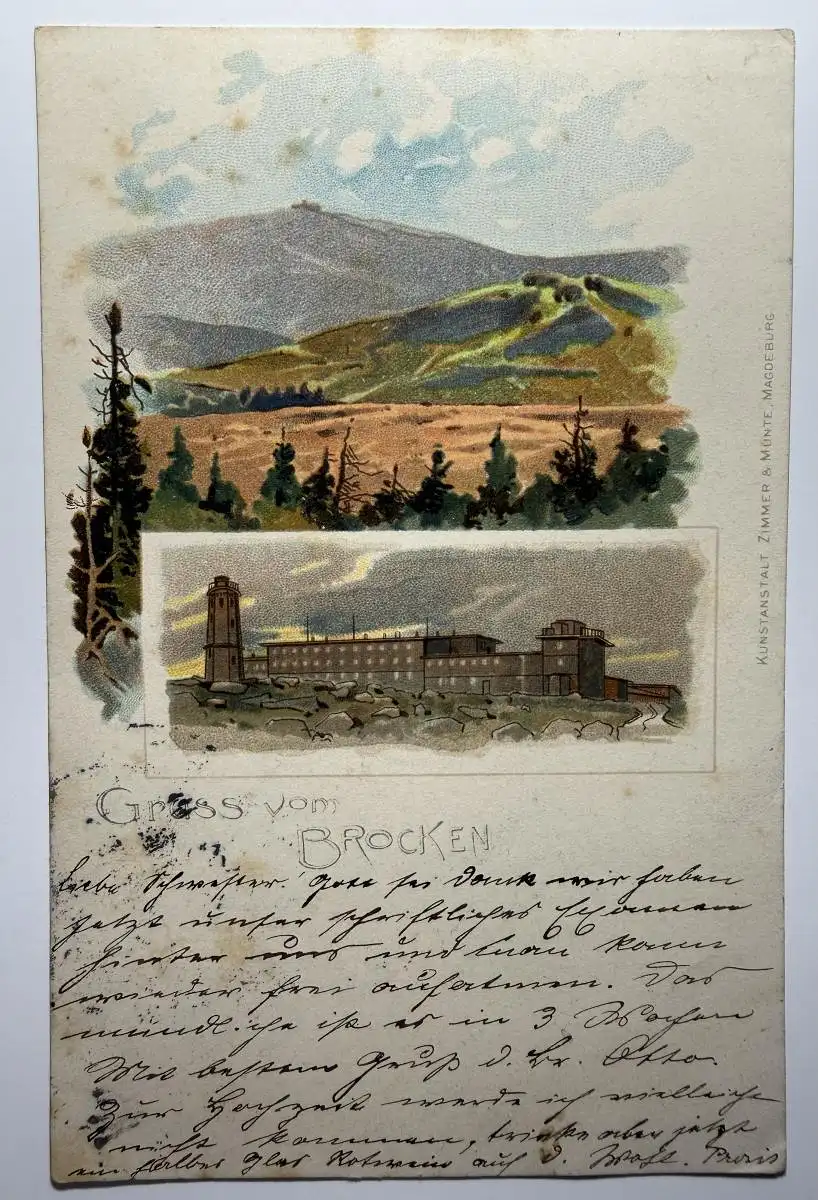 KUNSTANSTALT ZIMMER & MÜNTE, MAGDEBURG
Gruss vom
BROCKEN
Liebe Schwester! Gott sei Dank wir haben
jetzt unser schriftliches Examen
hinter uns und man kann
wieder frei aufatmen. Das
mündliche ist es in 3 Wochen
Mit bestem Gruß d. Br. Otto.
Zur Hochzeit werde ich vielleicht
nicht kommen, trinke aber jetzt
ein halbes Glas Rotwein auf d. Wohl.